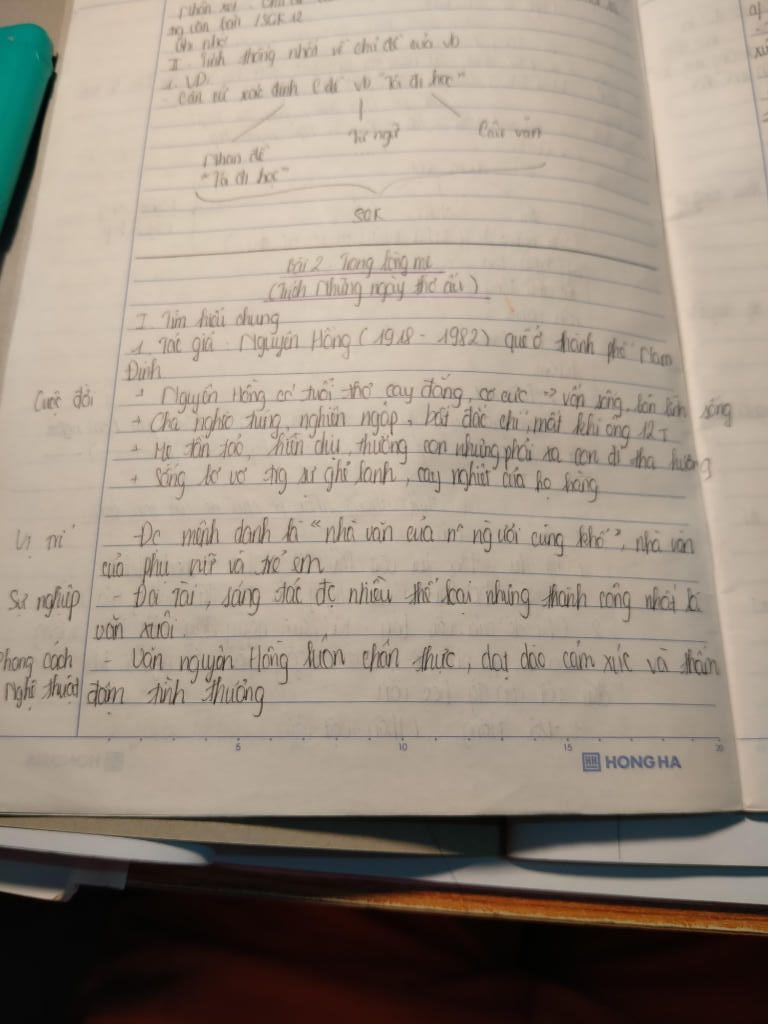 Nhận xét
ng văn bản /SGK 12
Ghi nhớ
II. Tính thống nhất về chủ đề của vb
1. VD.
- Căn cứ xác định Cđề vb "Tôi đi học"
Nhan đề
"Tôi đi học"
Từ ngữ
Câu văn
SGK
Bài 2 Trong lòng mẹ
(Trích Những ngày thơ ấu)
I Tìm hiểu chung
1. Tác giả. Nguyên Hồng (1918 - 1982) quê ở thành phố Nam
Định
Cuộc đời
+ Nguyên Hồng có tuổi thơ cay đắng, cơ cực => vốn sống, bản lĩnh sống
+ Cha nghèo túng, nghiện ngập, bất đắc chí, mất khi ông 12T
+ Mẹ tần tảo, hiền dịu, thương con nhưng phải xa con đi tha hương
+ Sống bơ vơ tng sự ghẻ lạnh, cay nghiệt của họ hàng
Vị trí
- Đc mệnh danh là "nhà văn của nº người cùng khổ", nhà văn
của phụ nữ và trẻ em
Sự nghiệp
- Đa tài, sáng tác đc nhiều thể loại nhưng thành công nhất là
văn xuôi.
Phong cách
Nghệ thuật
- Văn nguyên Hồng luôn chân thực, dạt dào cảm xúc và thấm
đẫm tình thương
5 10 15 20
HH HONG HA